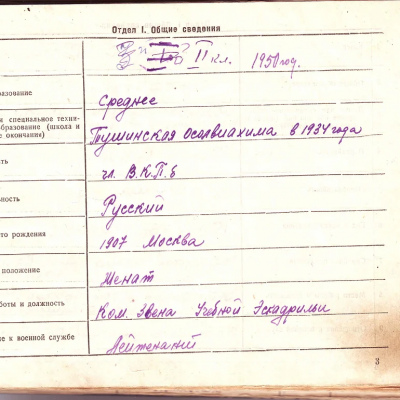 Отдел I. Общие сведения
II кл. 1950 год.
разование
Среднее
и специальное техни-
образование (школа и
е окончания)
Тушинская Осоавиахима в 1934 года
ть
чл. В.К.П.б
ность
Русский
то рождения
1907 Москва
положение
Женат
боты и должность
Ком. Звена Учебной Эскадрильи
ие к военной службе
Лейтенант
3